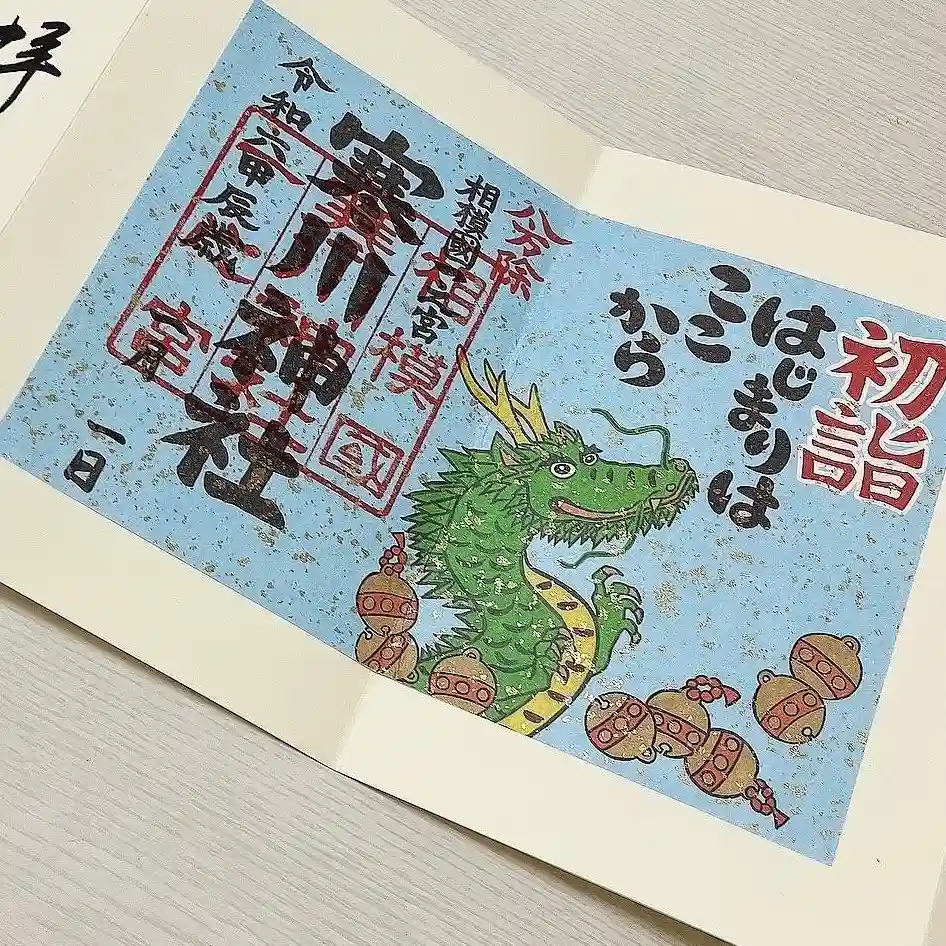 初詣
はじまりは
ここ
から
八方除
相模國一之宮
寒川神社
令和六甲辰歳一月一日
相模國
寒川神社
一之宮